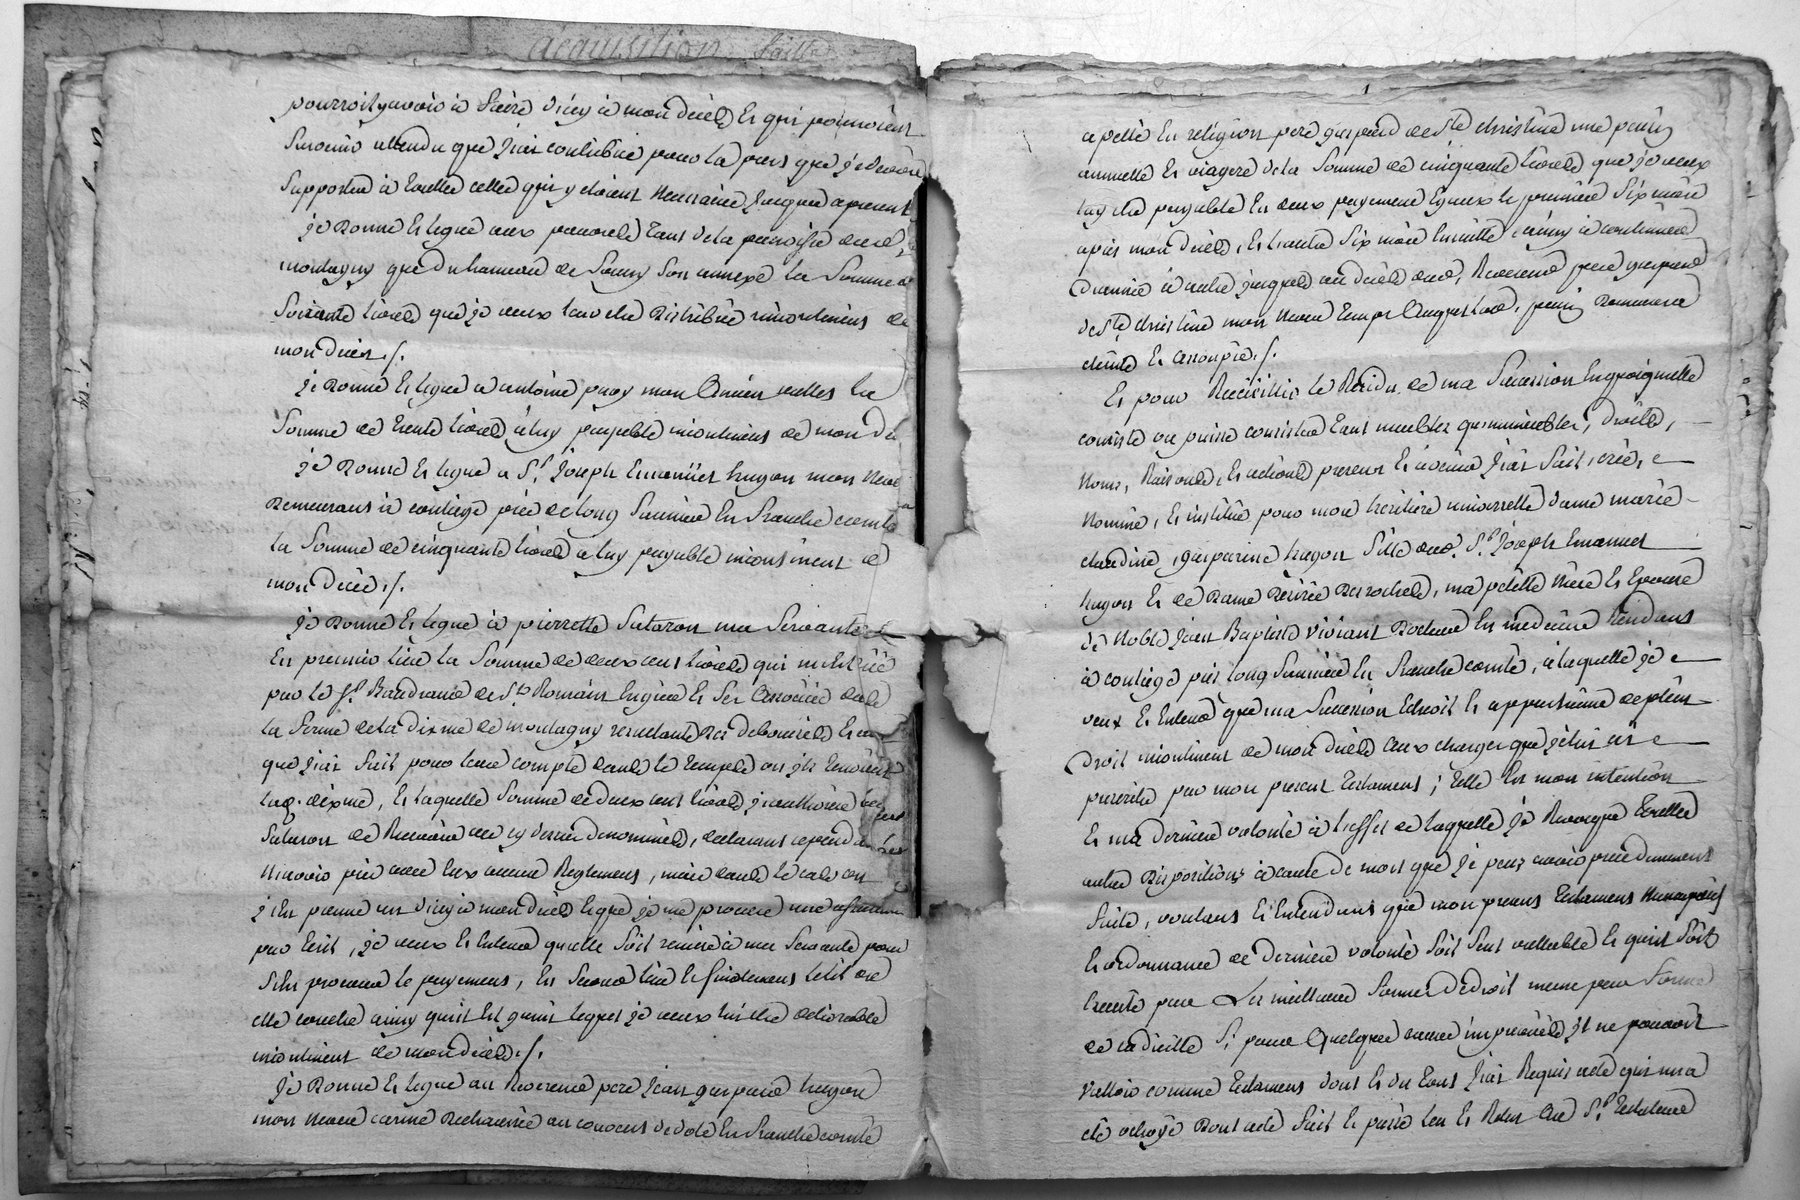 acquisition faitte
pourroit y avoir à faire d'icy à mon décéd et qui pourroient
survenir attendu que j'ais contribué pour la pars que je devois
supporter à touttes celles qui y étoient necessaires jusques apresent
je donne et legue aux pauvres tant de la paroisse dud.
montagny que du hameau de son annexe la somme de
soixante livres que je veux leur etre distribuée incontinent
mon décès ./.
je donne et legue a antoine puy mon ancien vallet la
somme de trente livres à luy payable incontinens de mon dé
je donne et legue a Sr. joseph Emanüel hugon mon neveu
demeurans à conliège prés de long Saunier en franche comté
la somme de cinquante livres a luy payable incontinent de
mon décés ./.
je donne et legue à pierrette Sutaron ma servante
en premier lieu la somme de deux cens livres qui m'est
par le Sr. de St. Romain et ses associés dans
la ferme de la dixme de montagny
que j'ais fait pour leur compte dans le temps ou ils tenoient
lad. dixme, et laquelle somme de deux cent livres j'authorise
Sutaron de recevoir des cy dessus denommés, declarans
n'avoir pris avec eux aucuns Reglemens, mais dans le cas ou
j'en prenne un d'icy à mon décéd et que je me procure une
par écrit, je veux et entend quelle soit remise à ma servante pour
s'en procurer le payemens, en second lieu et finalemens le lit ou
elle couche ainsy qu'il est garni lequel je veux lui etre délivrable
incontinent de mon décéd ./.
je donne et legue au Reverend pere jean gaspard hugon
mon neveu carme dechaussée au couvens de dole en franche comté
apellé en religion pere gaspard de Ste. christine une pension
annuelle et viagere de la somme de cinquante livres que je veux
luy etre payable en deux payemens egaux le premier six mois
après mon décéd, et l'autre six mois ensuitte, ainsy à continuer
d'année à autre jusques au décéd dud. Reverend pere gaspard
de Ste. christine mon neveu temps auquel lad. pension demeurera
éteinte et assoupie ./.
Et pour Recüeillir le Residu de ma succession en quoiquelle
consiste ou puisse consister tant meubles qu'immeubles, droits,
noms, Raisons, et actions presens et avenir j'ais fait, créé,
nommé, et institué pour mon heritière universelle dame marie
claudine gasparine hugon fille dud. Sr. joseph Emanuel
hugon et de dame Desirée Desrochers, ma petitte niéce et Epouse
de noble jean Baptiste viviant Docteur en medecine Residans
à conliège près long Saunier en franche comté, à laquelle je
veux et entend que ma succession échoit et appartienne de plein
droit incontinent de mon décéd aux charges que je lui ait
prescrite par mon present testament; telle est mon intention
et ma derniere volonté à l'effet de laquelle je Revoque touttes
autres dispositions à cause de mort que je peux avoir précédamment
faite, voulans et entendans que mon present testament
et ordonnance de derniere volonté soit seul vallable et qu'il soit
executé par les meilleures formes de droit meme par forme
de codicille si pour quelques causes imprévües il ne pouvoit
valloir comme testament dont et du tout j'ais Requis acte qui m'a
été octroyé dont acte fait et passé leu et Releu aud. Sr. testateur